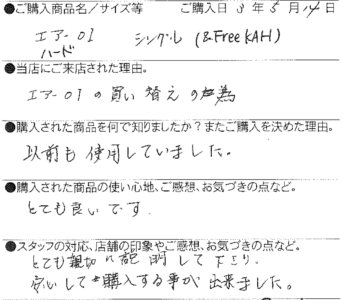 ●ご購入商品名／サイズ等 ご購入日 3年5月14日
エアー01 シングル (&Free KAH)
ハード
●当店にご来店された理由。
エアー01の買い替えの為
●購入された商品を何で知りましたか？またご購入を決めた理由。
以前も使用していました。
●購入された商品の使い心地、ご感想、お気づきの点など。
とても良いです.
●スタッフの対応、店舗の印象やご感想、お気づきの点など。
とても親切に説明して下さり.
安心して購入する事が出来ました。